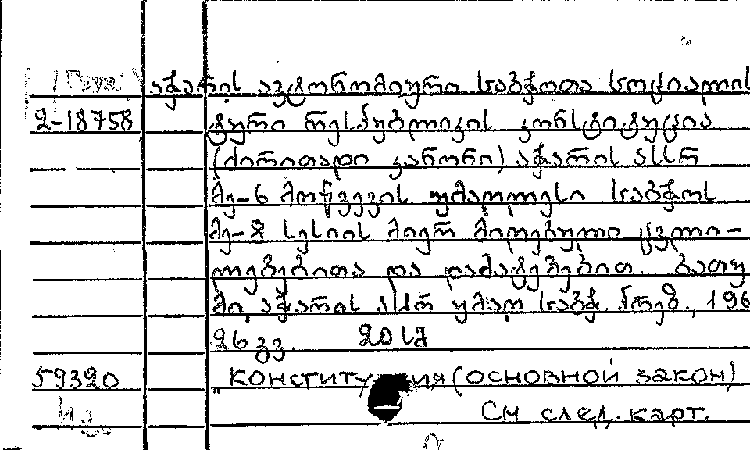 აჭარის ავტონომიური საბჭოთა სოციალის
2-18758 ტური რესპუბლიკის კონსტიტუცია
(ძირითადი კანონი) აჭარის ასსრ
მე-6 მოწვევის უმაღლესი საბჭოს
მე-8 სესიის მიერ მიღებული ცვლი-
ლებებითა და დამატებებით. ბათუ
მი, აჭარის ასსრ უმაღ. საბჭ. პრეზ., 196
26 გვ. 20 სმ
59320 "Конституция (основной закон)
См след. карт.